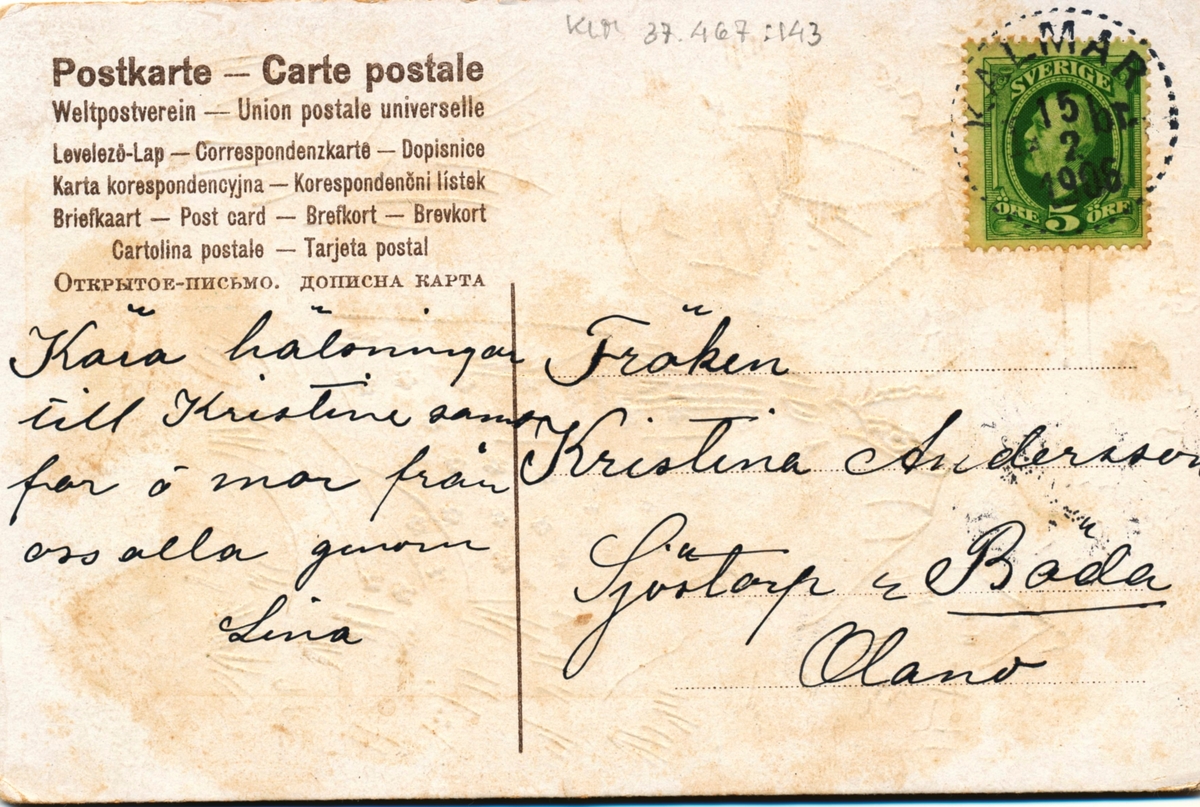 KLM 37.467:143
Postkarte — Carte postale
Weltpostverein — Union postale universelle
Levelező-Lap — Correspondenzkarte — Dopisnice
Karta korespondencyjna — Korespondenčni lístek
Briefkaart — Post card — Brefkort — Brevkort
Cartolina postale — Tarjeta postal
Открытое-письмо. дописна карта
KALMAR
15
2
1906
SVERIGE
ÖRE 5 ÖRE
Kära hälsningar
till Kristine samt
far ó mor från
oss alla genom
Lina
Fröken
Kristina Andersson
Sjöstorp Böda
Öland